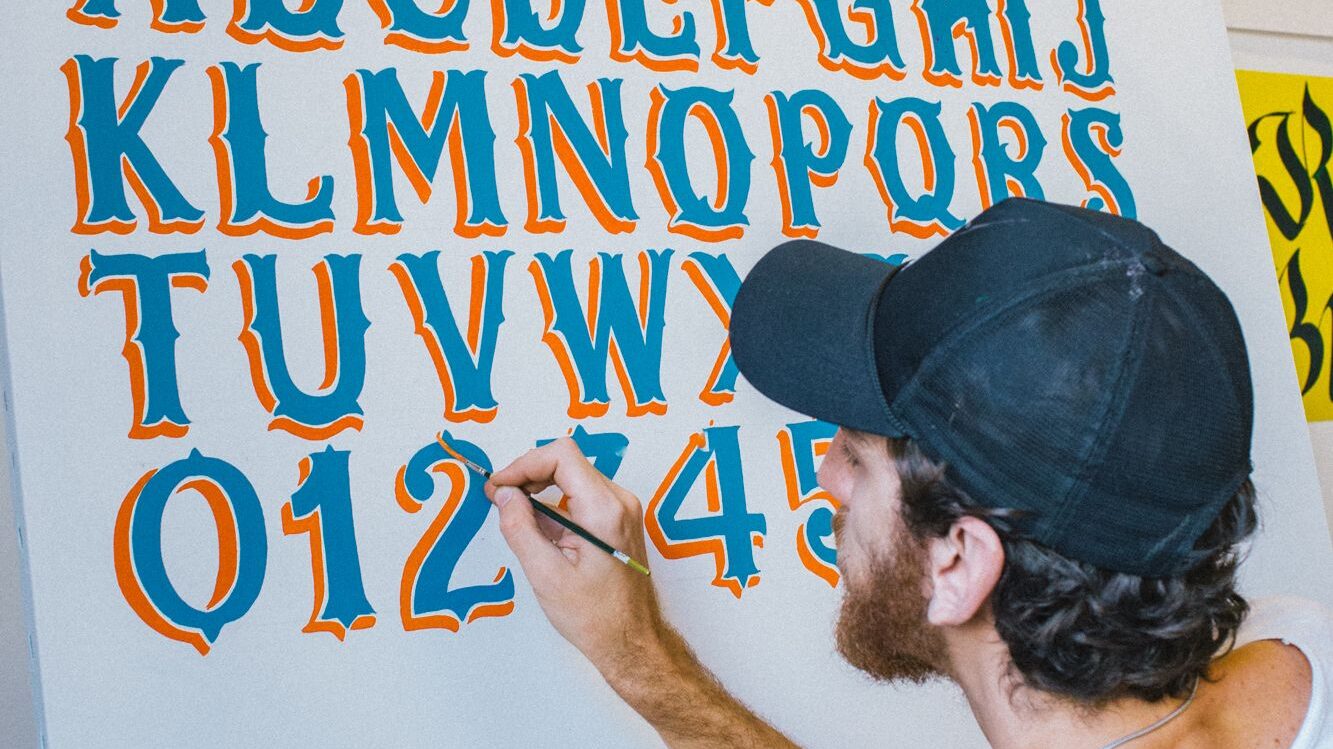 ABCDEFGHIJ
KLMNOPQRS
TUVWX
012345